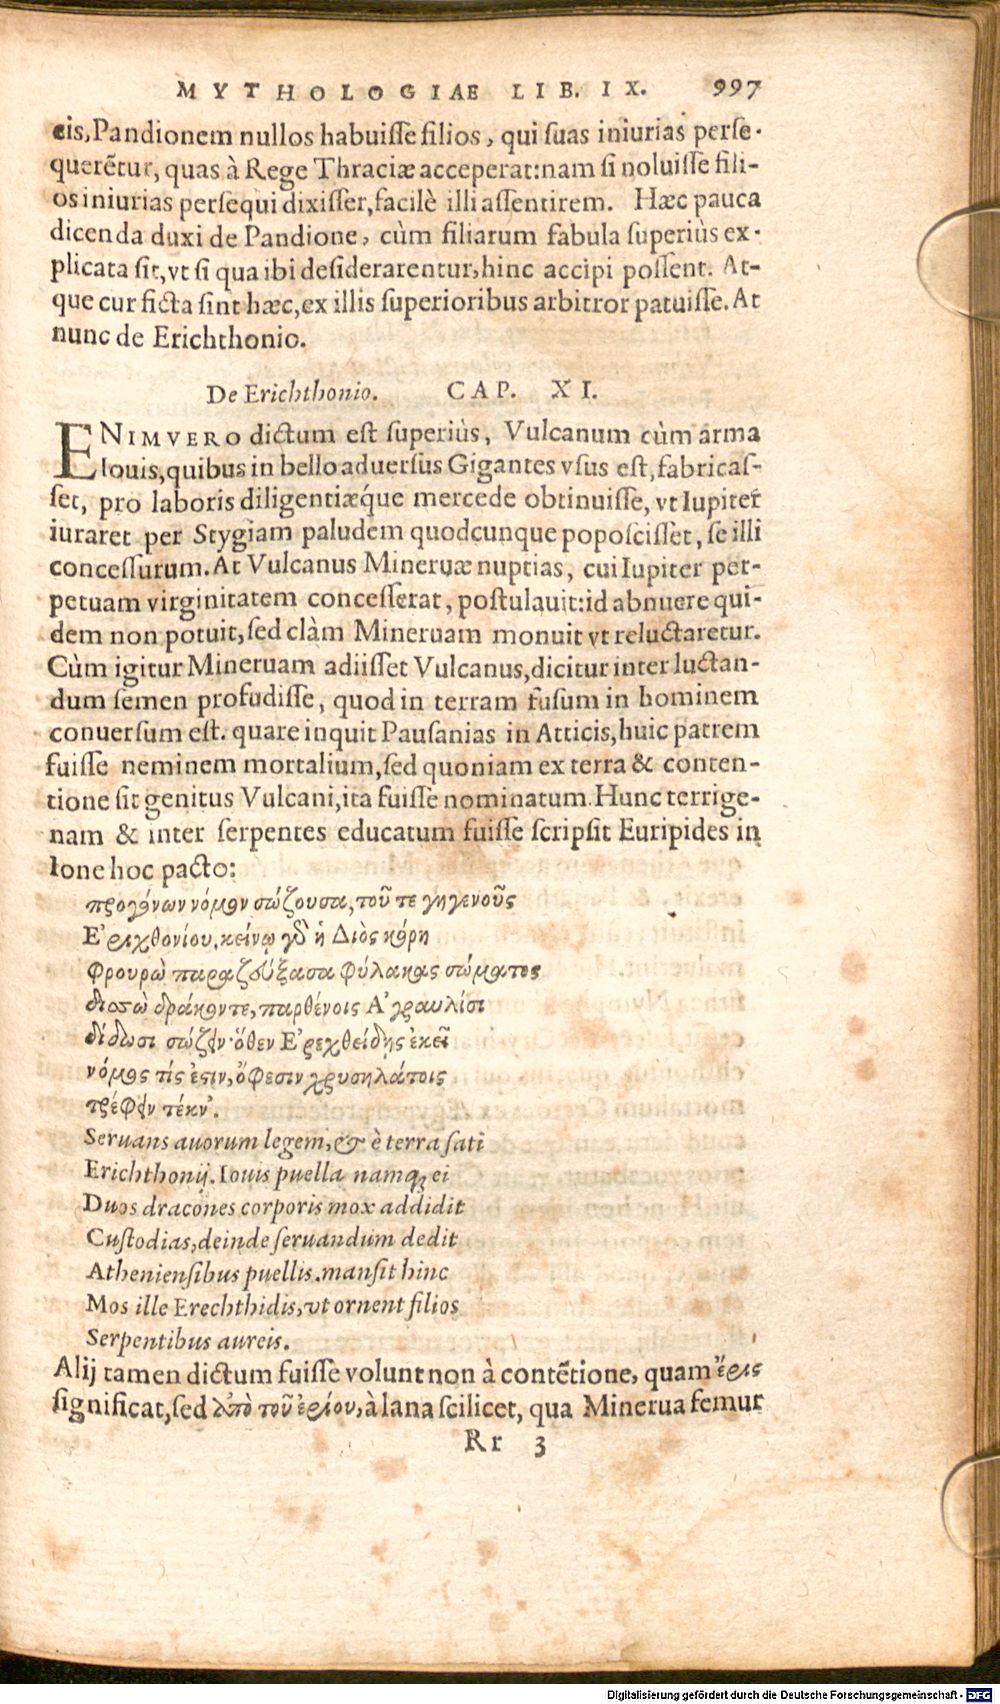 MYTHOLOGIAE LIB. IX. 997
cis, Pandionem nullos habuisse filios, qui suas iniurias perse-
querẽtur, quas à Rege Thraciæ acceperat: nam si noluisse fili-
os iniurias persequi dixisset, facilè illi assentirem. Hæc pauca
dicenda duxi de Pandione, cùm filiarum fabula superiùs ex-
plicata sit, vt si qua ibi desiderarentur, hinc accipi possent. At-
que cur ficta sint hæc, ex illis superioribus arbitror patuisse. At
nunc de Erichthonio.
De Erichthonio. CAP. XI.
ENIMVERO dictum est superiùs, Vulcanum cùm arma
Iouis, quibus in bello aduersus Gigantes vsus est, fabricas-
set, pro laboris diligentiæq́ue mercede obtinuisse, vt Iupiter
iuraret per Stygiam paludem quodcunque poposcisset, se illi
concessurum. At Vulcanus Mineruæ nuptias, cui Iupiter per-
petuam virginitatem concesserat, postulauit: id abnuere qui-
dem non potuit, sed clàm Mineruam monuit vt reluctaretur.
Cùm igitur Mineruam adiisset Vulcanus, dicitur inter luctan-
dum semen profudisse, quod in terram fusum in hominem
conuersum est. quare inquit Pausanias in Atticis, huic patrem
fuisse neminem mortalium, sed quoniam ex terra & conten-
tione sit genitus Vulcani, ita fuisse nominatum. Hunc terrige-
nam & inter serpentes educatum fuisse scripsit Euripides in
Ione hoc pacto:
προγόνων νόμον σώζουσα, τοῦ τε γηγενοῦς
Ἐριχθονίου. κείνῳ γὸ ἡ Διὸς κόρη
Φρουρὼ παραζεύξασα φύλακας σώματος
διοσὼ δράκοντε, παρθένοις Ἀγραυλίσι
δίδωσι σώζειν· ὅθεν Ἐρεχθείδης ἐκεῖ
νόμος τίς ἐστιν, ὄφεσιν χρυσηλάτοις
τρέφειν τέκν'.
Seruans auorum legem, & è terra sati
Erichthonij. Iouis puella namq; ei
Duos dracones corporis mox addidit
Custodias, deinde seruandum dedit
Atheniensibus puellis. mansit hinc
Mos ille Erechthidis, vt ornent filios
Serpentibus aureis.
Alij tamen dictum fuisse volunt non à contẽtione, quam ἔρις
significat, sed ἀπὸ τοῦ ἐρίου, à lana scilicet, qua Minerua femur
Rr 3
Digitalisierung gefördert durch die Deutsche Forschungsgemeinschaft - DFG